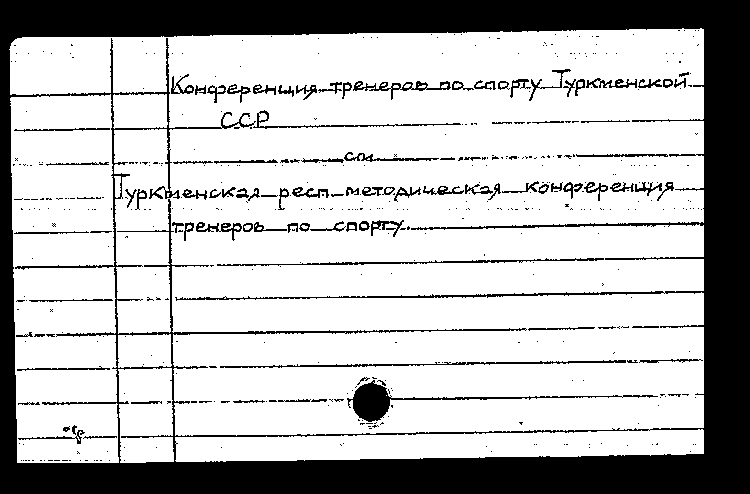 Конференция тренеров по спорту Туркменской
ССР
см.
Туркменская респ. методическая конференция
тренеров по спорту.